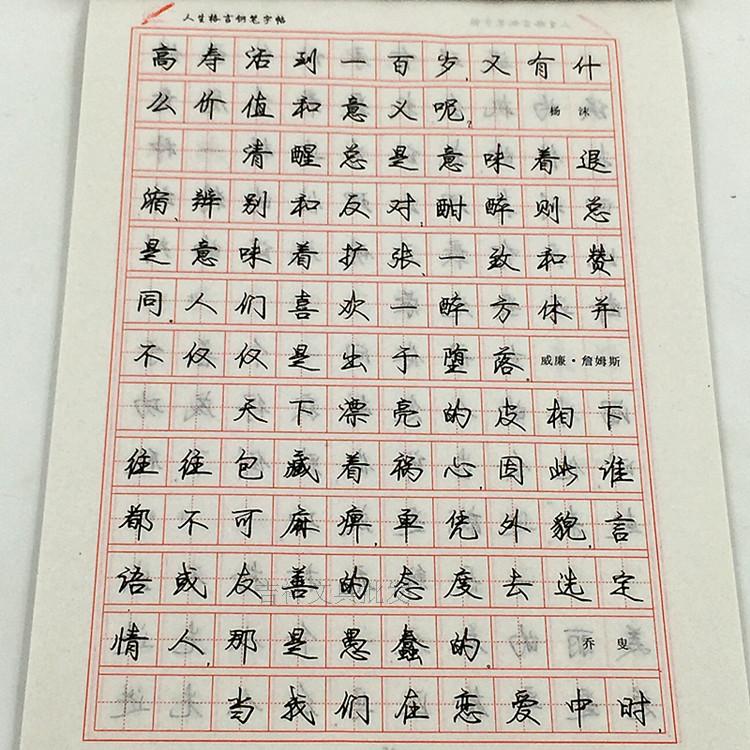 人生格言钢笔字帖
高寿活到一百岁,又有什
么价值和意义呢? 杨沫
清醒总是意味着退
缩、辨别和反对,酣醉则总
是意味着扩张、一致和赞
同。人们喜欢一醉方休并
不仅仅是出于堕落。 威廉·詹姆斯
天下漂亮的皮相下
往往包藏着祸心,因此谁
都不可麻痹,单凭外貌、言
语或友善的态度去选定
情人,那是愚蠢的。 乔叟
当我们在恋爱中时,